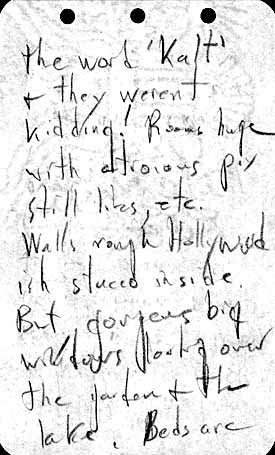 the word 'Kalt'
+ they weren't
kidding! Rooms huge
with atrocious pix
still lifes, etc.
Walls rough Hollywood
ish stucco inside.
But gorgeous big
windows looking over
the garden + the
lake. Beds are